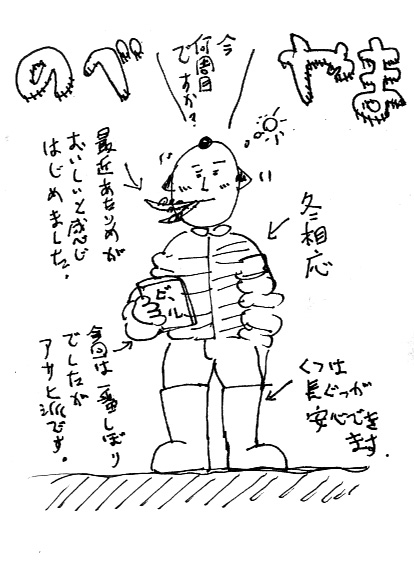 のべ゛やま
今
何周目
ですか?
最近あたりめが
おいしいと感じ
はじめました。
冬相応
ビール
今回は一番しぼり
でしたが
アサヒ派です。
くつは
長ぐつが
安心でき
ます。